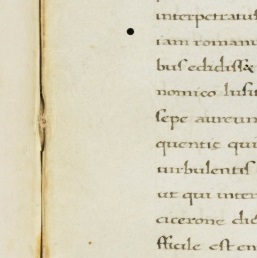 interpretatus
iam romanu
bus edidisse
nomico lusit
sepe aureum
quentie qui
turbulentis
ut qui inter
cicerone dic
fficile est en